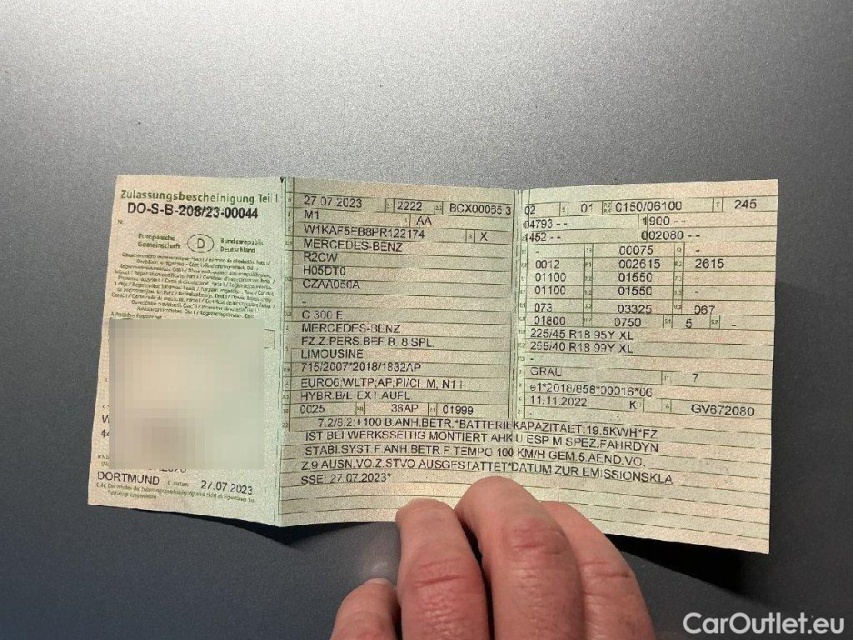 Zulassungsbescheinigung Teil I
DO-S-B-208/23-00044
Nr.
Europäische Gemeinschaft
D
Bundesrepublik Deutschland
DORTMUND
27.07.2023
27.07.2023 2222 BCX00065 3
M1 AA
W1KAF5EB8PR122174 X
MERCEDES-BENZ
R2CW
H05DT0
CZAA050A
-
C 300 E
MERCEDES-BENZ
FZ.Z.PERS.BEF.B. 8 SPL.
LIMOUSINE
715/2007*2018/1832AP
EURO6;WLTP;AP;PI/CI M, N1 I
HYBR.B/L EXT.AUFL
0025 36AP 01999
02 01 0150/06100 245
04793 - - 1900 - -
1452 - - 002080 - -
- 00075 -
0012 002615 2615
01100 01550
01100 01550
073 03325 067
01800 0750 5 -
225/45 R18 95Y XL
255/40 R18 99Y XL
-
GRAU 7
e1*2018/858*00016*06
11.11.2022 K GV672080
7.2/8.2:+100 B.ANH.BETR.*BATTERIEKAPAZITAET:19.5KWH*FZ
IST BEI WERKSSEITIG MONTIERT AHK U ESP M SPEZ.FAHRDYN
STABI.SYST.F.ANH.BETR.F.TEMPO 100 KM/H GEM.5.AEND.VO.
Z.9 AUSN.VO.Z.STVO AUSGESTATTET*DATUM ZUR EMISSIONSKLA
SSE: 27.07.2023*
CarOutlet.eu